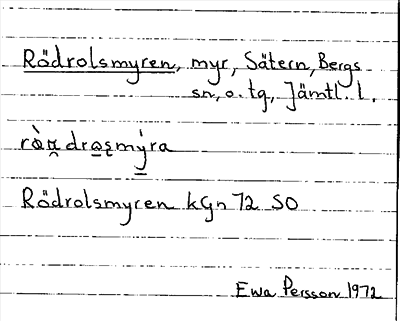 Rödrolsmyren, myr, Sätern, Bergs
sn, o. tg, Jämtl. l.
rò̀ʀ̯dro̠s̨mý̠ra
Rödrolsmyren kGn 72 SO
Ewa Persson 1972